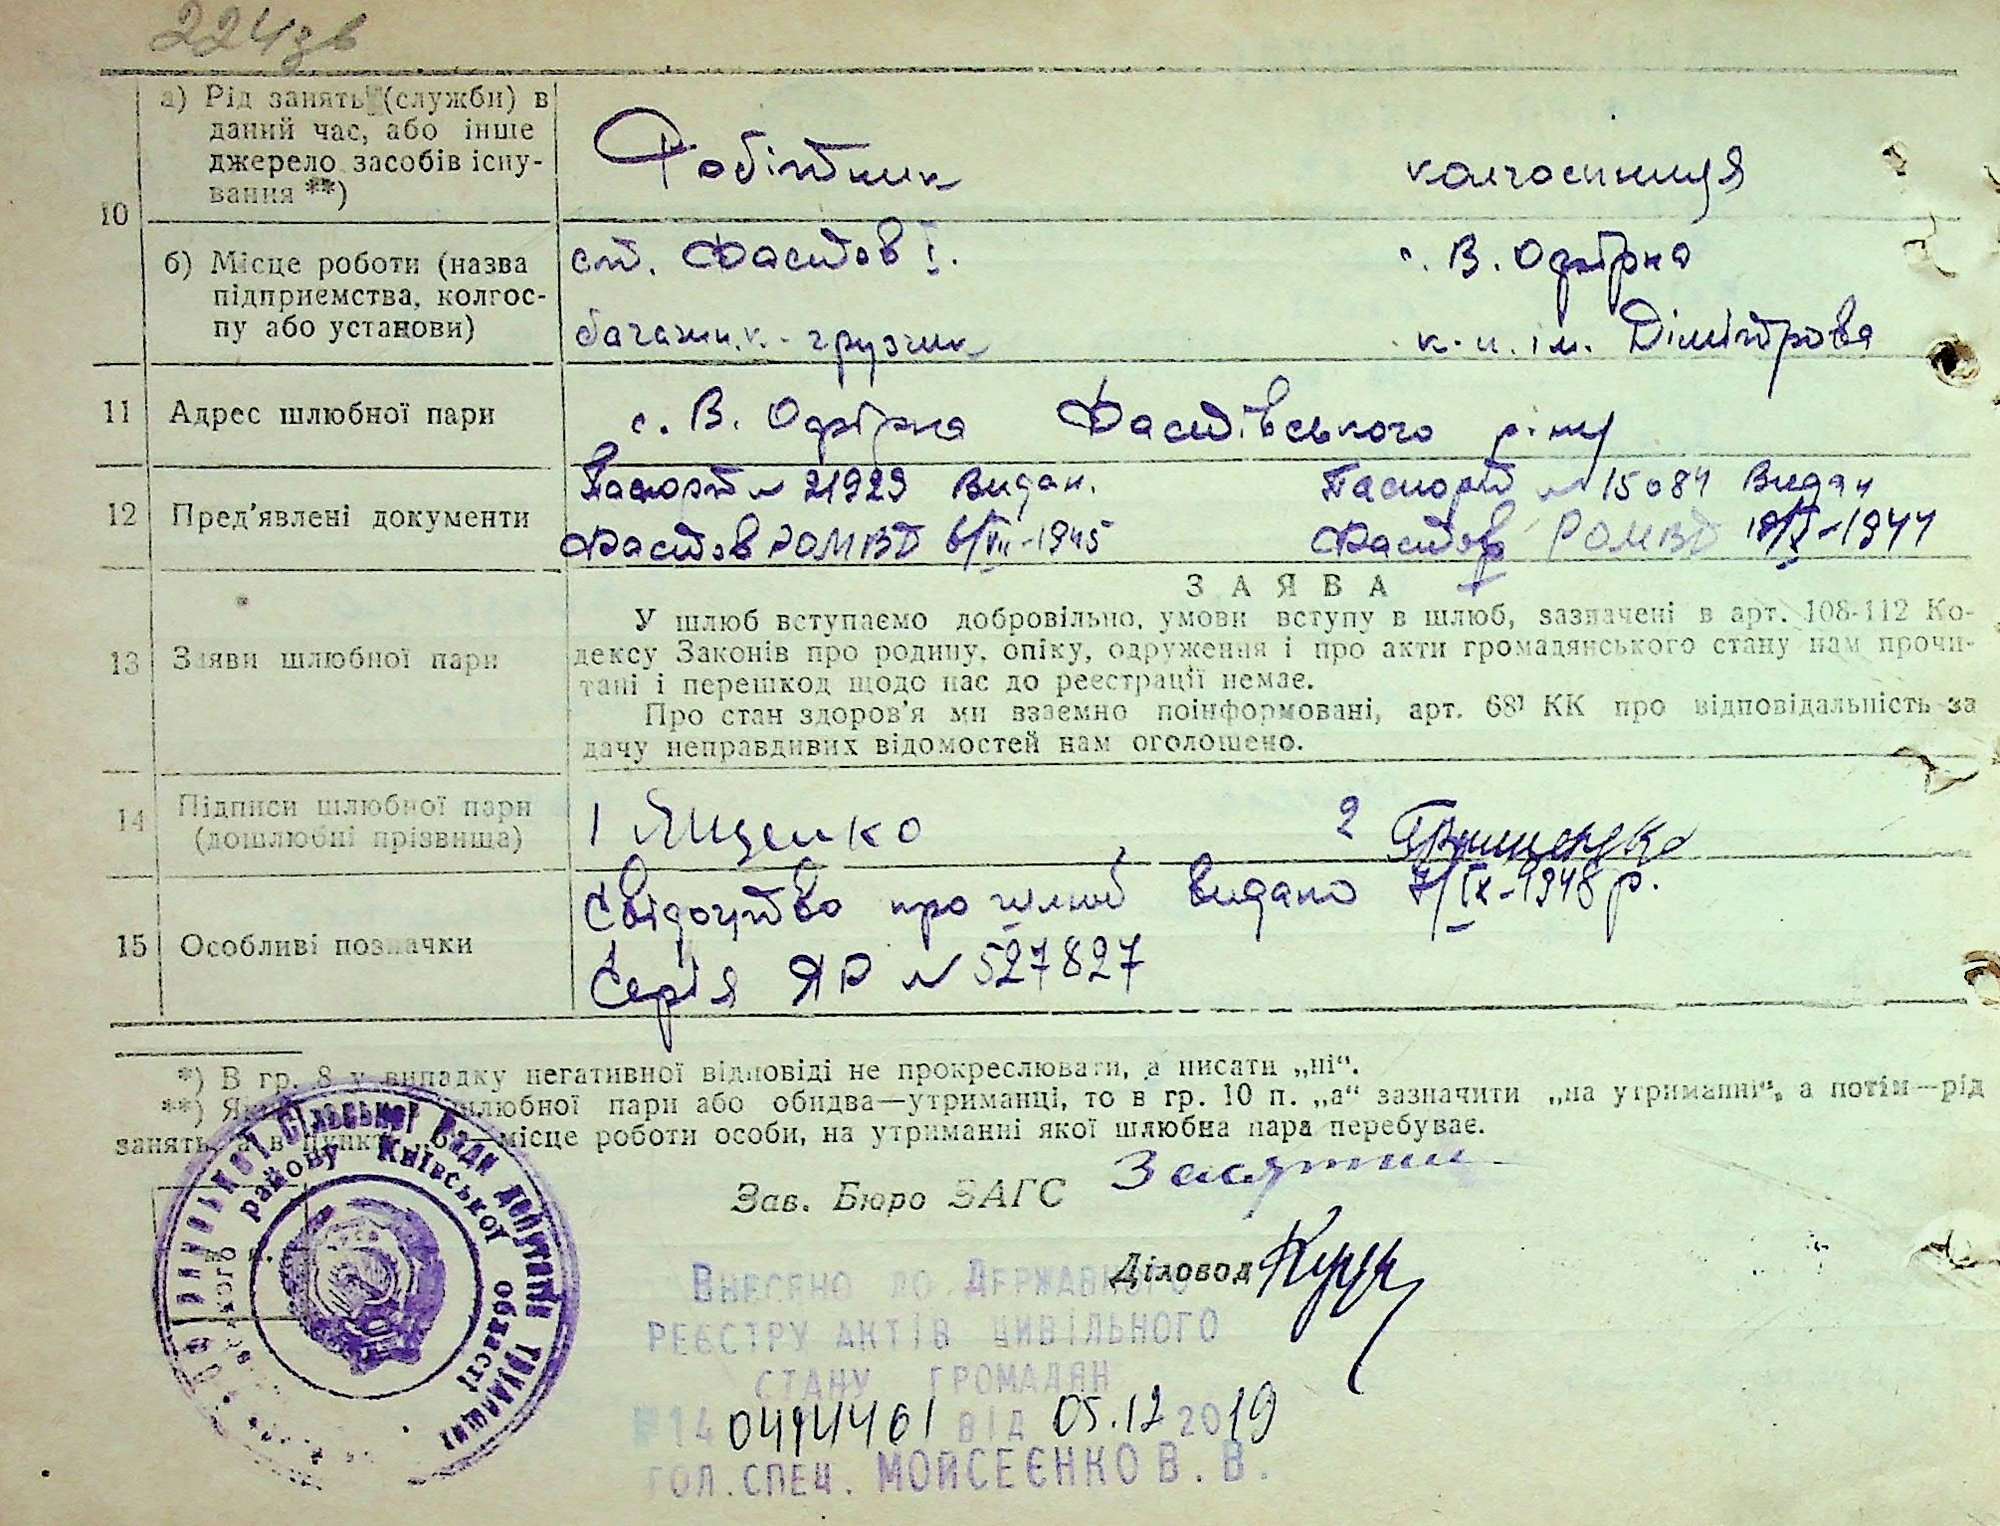 224зв
10
а) Рід занять (служби) в
даний час, або інше
джерело засобів існу-
вання **)
Робітник
колгоспниця
б) Місце роботи (назва
підприємства, колгос-
пу або установи)
ст. Фастов I.
с. В. Офірна
багажн. к. - грузчик
к-п. ім. Дімітрова
11 Адрес шлюбної пари
с. В. Офірна Фастівського р-ну
12 Пред'явлені документи
Паспорт № 21929 Видан.
Фастов РОМВД 6/VII-1945
Паспорт № 15084 Видан
Фастов РОМВД 19/X-1944
13 Заяви шлюбної пари
ЗАЯВА
У шлюб вступаємо добровільно, умови вступу в шлюб, зазначені в арт. 108-112 Ко-
дексу Законів про родину, опіку, одруження і про акти громадянського стану нам прочи-
тані і перешкод щодо нас до реєстрації немає.
Про стан здоров'я ми взаємно поінформовані, арт. 68¹ КК про відповідальність за
дачу неправдивих відомостей нам оголошено.
14 Підписи шлюбної пари
(дошлюбні прізвища)
1 Ященко
2 Грищенко
15 Особливі позначки
Свідоцтво про шлюб видано 7/IX-1948 р.
Серія ЯР № 527827
*) В гр. 8 у випадку негативної відповіді не прокреслювати, а писати „ні“.
**) Як шлюбної пари або обидва—утриманці, то в гр. 10 п. „а“ зазначити „на утриманні“, а потім—рід
занять, а в пункті „б“—місце роботи особи, на утриманні якої шлюбна пара перебуває.
Зав. Бюро ЗАГС
Діловод
сільської Ради депутатів трудящих
району Київської області
Внесено до Державного
реєстру актів цивільного
стану громадян
№14 0414461 від 05.12 2019
гол. спец. Мойсеєнко В. В.